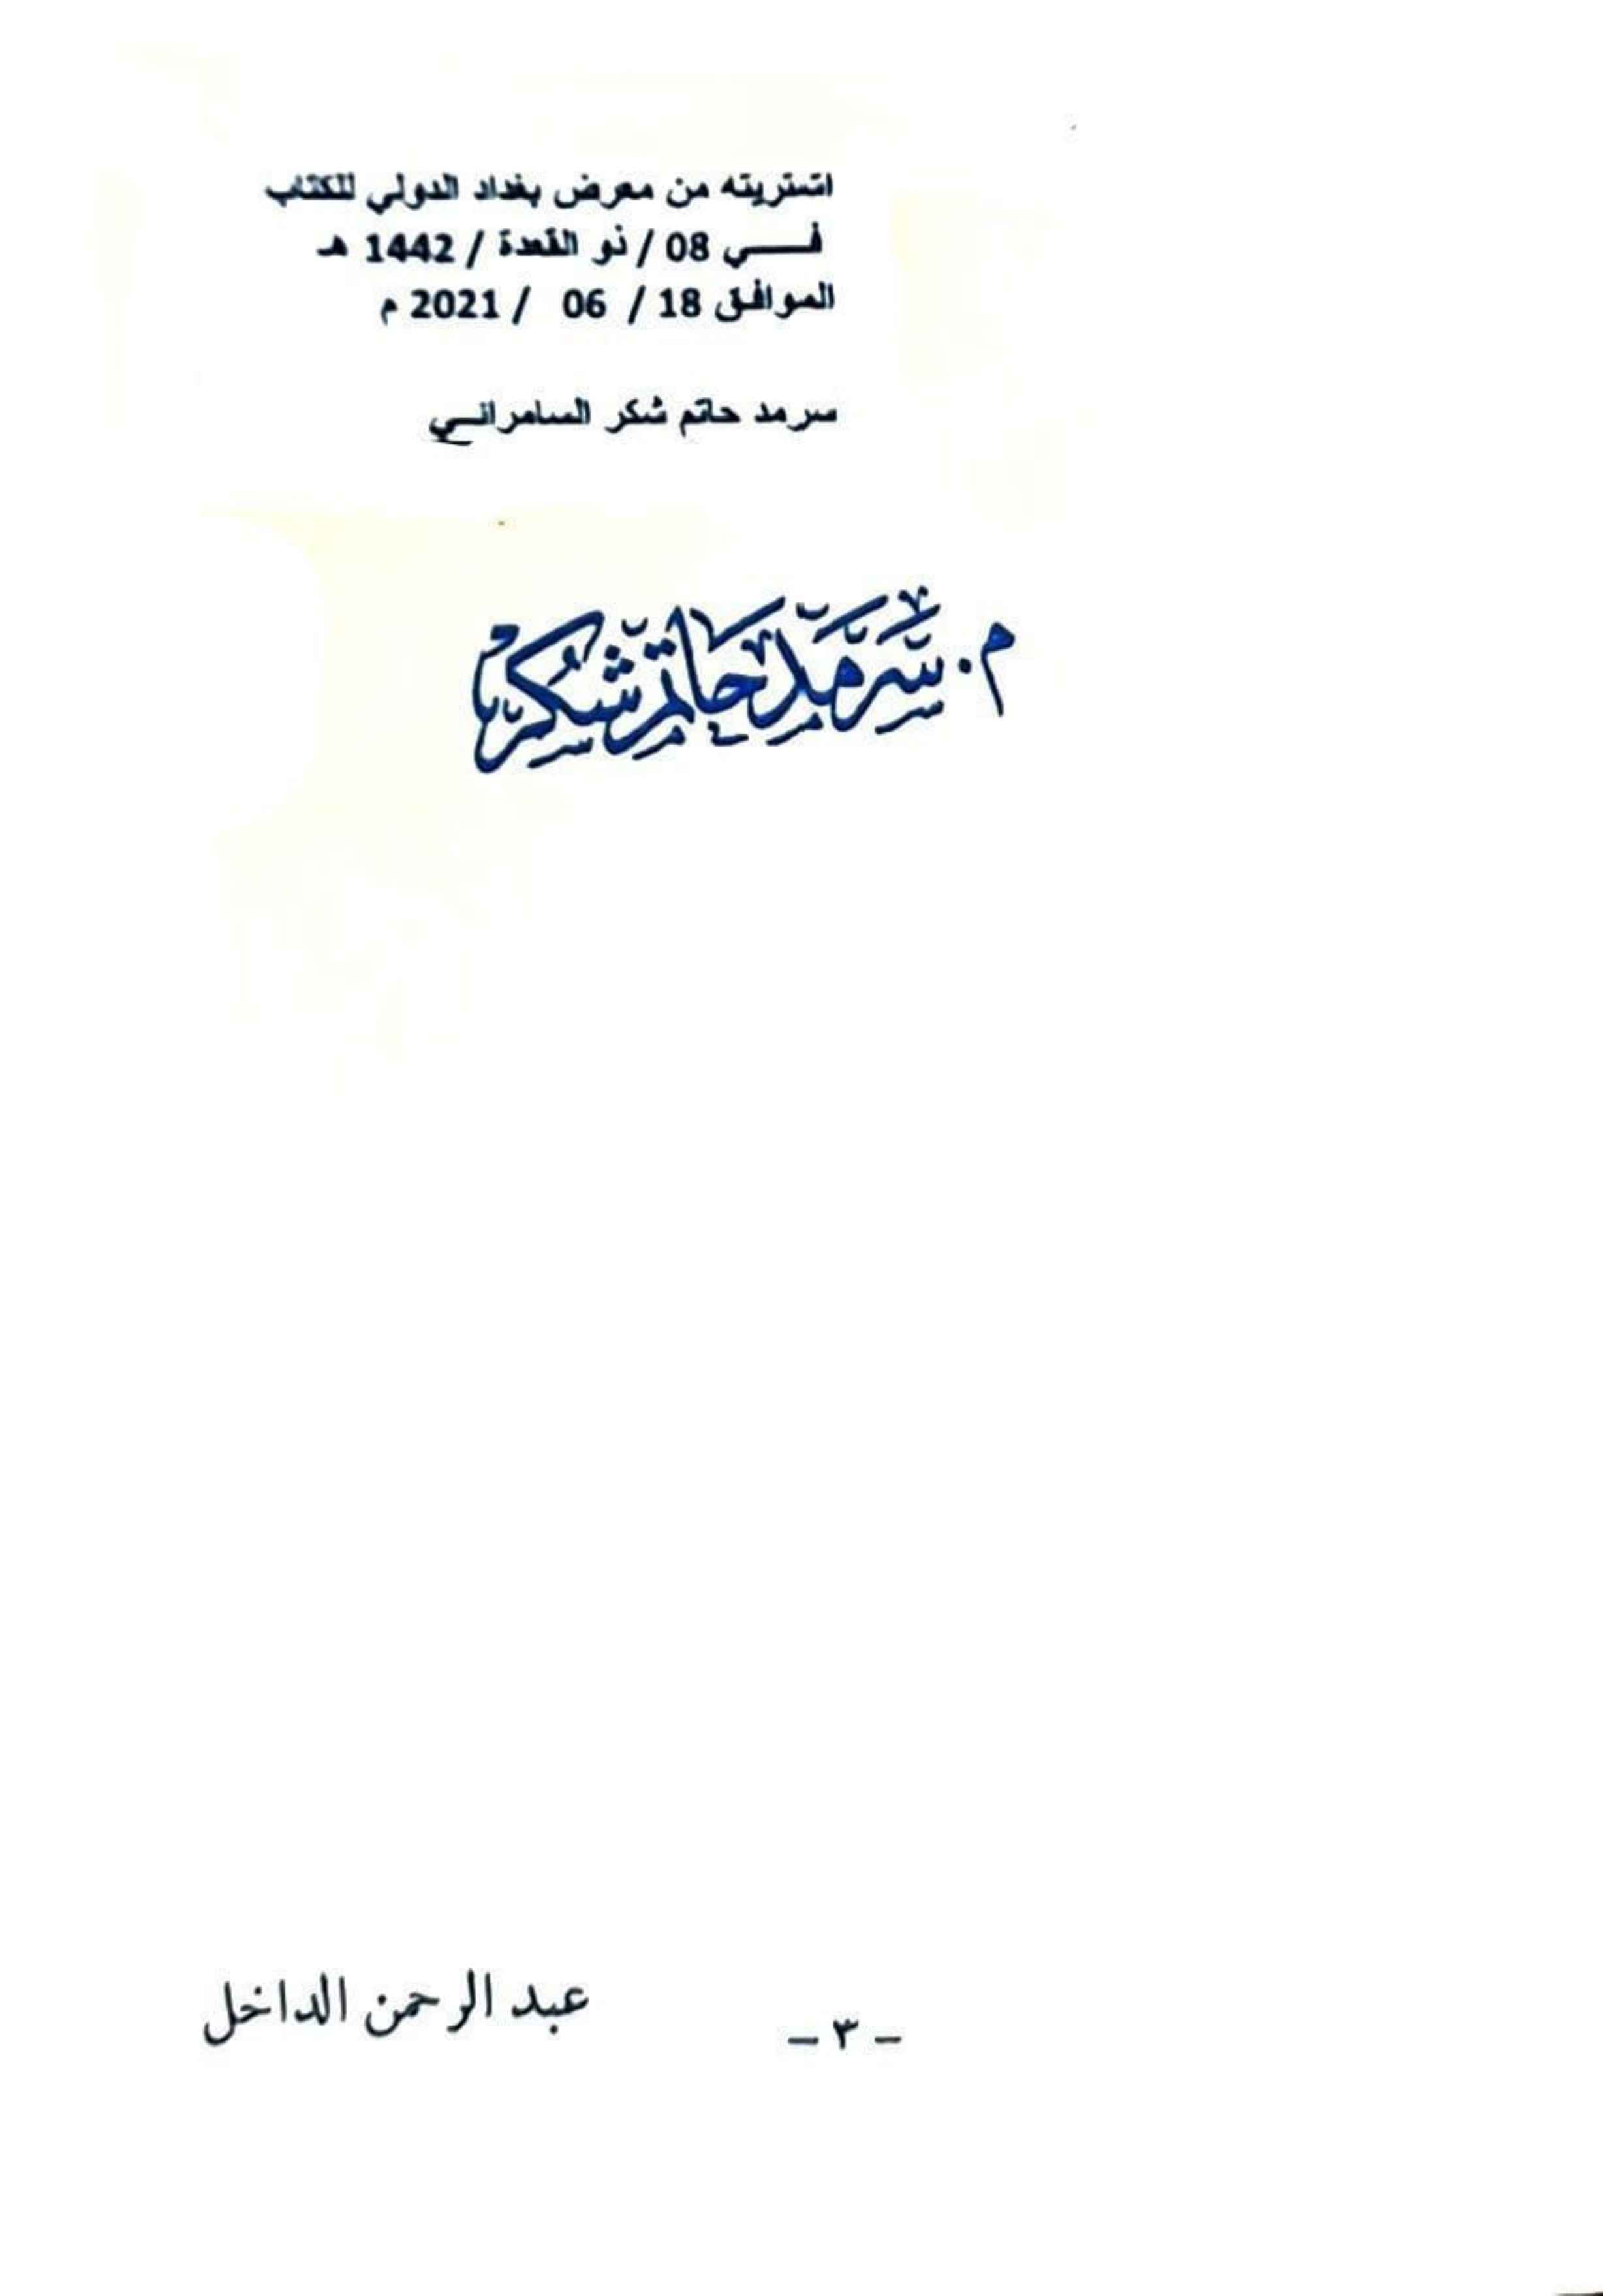 اشتريته من معرض بغداد الدولي للكتاب
فـــــي 08 / ذو القعدة / 1442 هـ
الموافق 18 / 06 / 2021 م
سرمد حاتم شكر السامرائـــي
م. سَرمَد حَاتم شُكر
- ٣ -
عبد الرحمن الداخل